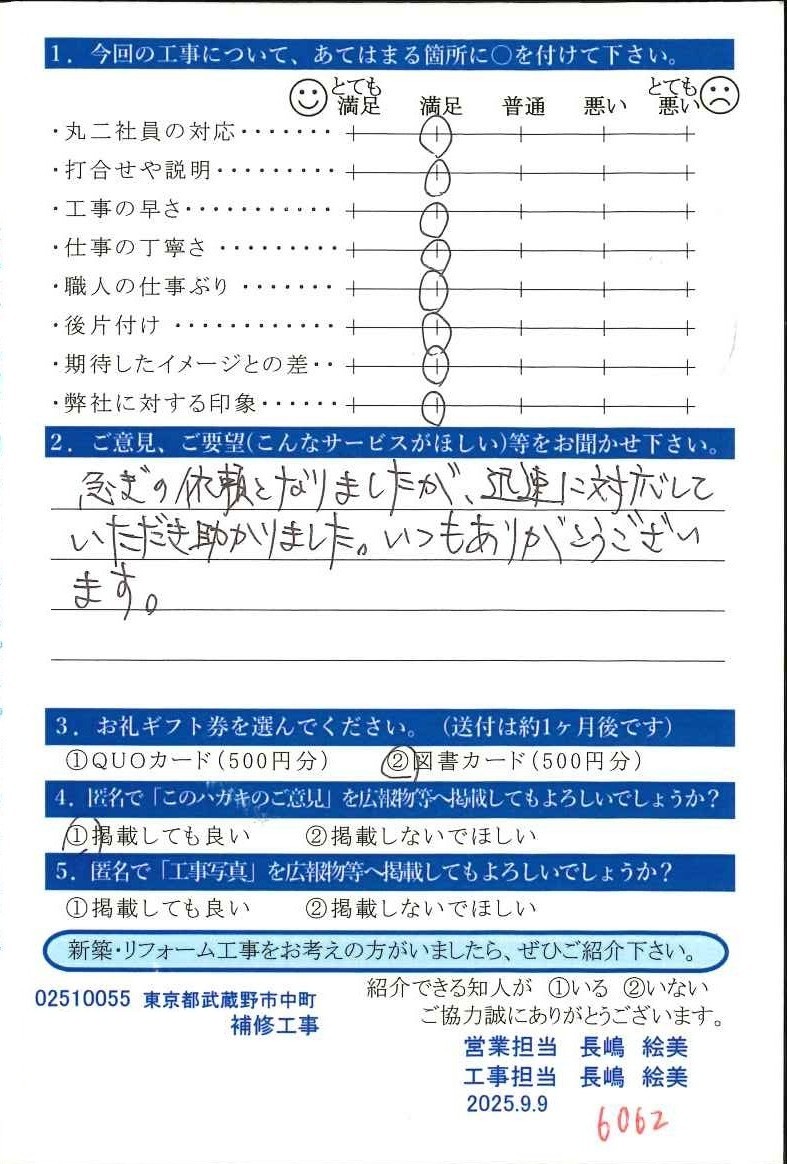 1．今回の工事について、あてはまる箇所に○を付けて下さい。
とても満足 満足 普通 悪い とても悪い
・丸二社員の対応・・・・・・・
・打合せや説明・・・・・・・・・
・工事の早さ・・・・・・・・・・・
・仕事の丁寧さ ・・・・・・・・・
・職人の仕事ぶり ・・・・・・・
・後片付け ・・・・・・・・・・・・
・期待したイメージとの差・・
・弊社に対する印象・・・・・・
2．ご意見、ご要望(こんなサービスがほしい)等をお聞かせ下さい。
急ぎの依頼となりましたが、迅速に対応して
いただき助かりました。いつもありがとうござい
ます。
3．お礼ギフト券を選んでください。（送付は約1ヶ月後です）
①QUOカード(500円分） ②図書カード(500円分）
4．匿名で「このハガキのご意見」を広報物等へ掲載してもよろしいでしょうか？
①掲載しても良い ②掲載しないでほしい
5．匿名で「工事写真」を広報物等へ掲載してもよろしいでしょうか？
①掲載しても良い ②掲載しないでほしい
新築・リフォーム工事をお考えの方がいましたら、ぜひご紹介下さい。
紹介できる知人が ①いる ②いない
02510055 東京都武蔵野市中町
ご協力誠にありがとうございます。
補修工事
営業担当 長嶋 絵美
工事担当 長嶋 絵美
2025.9.9
6062